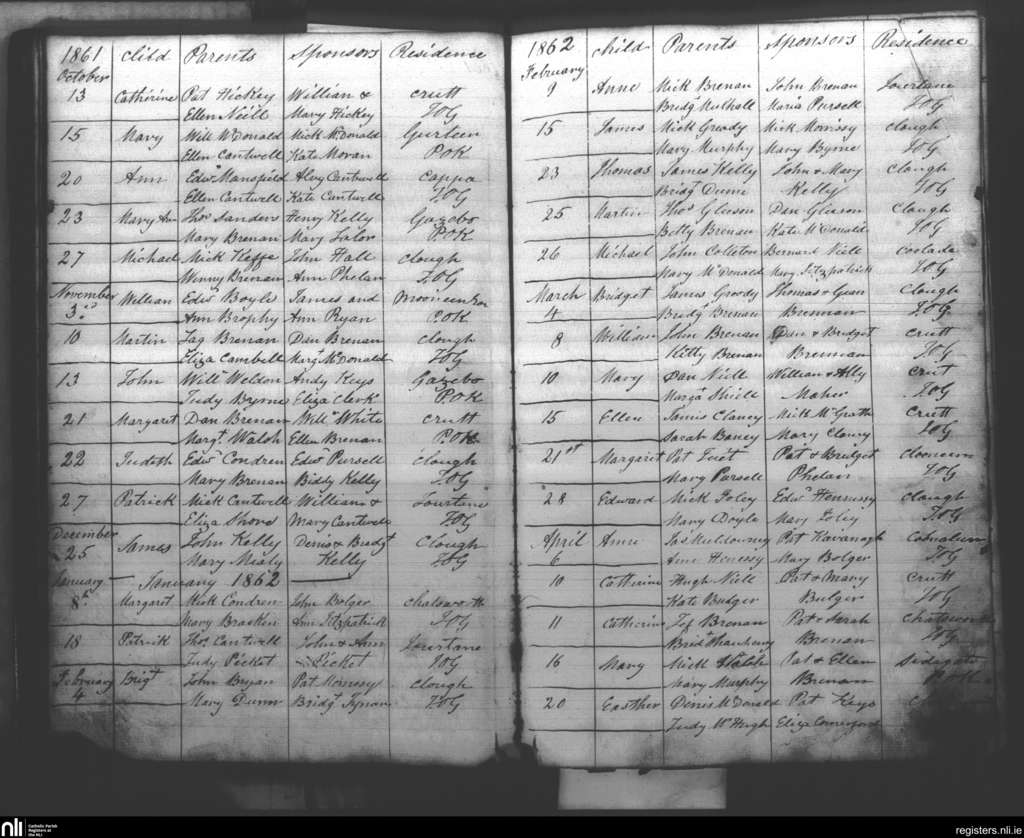 1861 Child Parents Sponsors Residence
October
13 Catherine Pat Hickey William & crutt
Ellen Neill Mary Hickey JOG
15 Mary Will McDonald Mick McDonald Gurteen
Ellen Cantwell Kate Moran POK
20 Ann Edwd Mansfield Cantwell cappa
Ellen Cantwell Kate Cantwell JOG
23 Mary Ann Thos Sanders Henry Kelly Gazebo
Mary Brenan Mary Lalor POK
27 Michael Mick Keffe John Hall clough
Winny Brenan Ann Phelan JOG
November William Edwd Boyle James and
3rd Ann Brophy Ann Ryan POK
10 Martin Brenan Dan Brenan clough
Eliza Cambell Margt McDonald JOG
13 John Willm Weldon Andy Keys Gazebo
Judy Byrne Eliza Clerk POK
21 Margaret Dan Brenan Willm White crutt
Margt Walsh Ellen Brenan POK
22 Judeth Edwd Condren Edwd Pursell clough
Mary Brenan Biddy Kelly JOG
27 Patrick Mick Cantwell William &
Eliza Shore Mary Cantwell JOG
December
25 James John Kelly Denis & Bridgt Clough
Mary Mealy Kelly JOG
January — January 1862 —
8th Margaret Mick Condren John Bolger chatsworth
Mary Bracken Ann Fitzpatrick JOG
18 Patrick Thos Cantwell John & Ann
Judy Picket Picket JOG
February Brigt John Bryan Pat clough
4 Mary Dunn Bridgt Tynan JOG
1862 child Parents Sponsors Residence
February
9 Anne Mick Brenan John Brenan
Bridg Mulhall Maria Pursell JOG
15 James Mick Gready Mick Morissy clough
Mary Murphy Mary Byrne JOG
23 Thomas James Kelly John & Mary Clough
Bridgt Dunne Kelly JOG
25 Martin Thos Gleeson Dan Gleeson Clough
Betty Brenan Kate McDonald JOG
26 Michael John Colleton Bernard Neill
Mary McDonald Mary Fitzpatrick JOG
March Bridget James Gready Thomas & Clough
4 Bridgt Brenan Brennan JOG
8 William John Brenan Dan & Bridget crutt
Kitty Brenan Brennan JOG
10 Mary Dan Neill William & Ally crut
Marga Shiell Maher JOG
15 Ellen James Clancy Mick McGrath Crutt
Sarah Mary JOG
21st Margaret Pat Pat & Bridget clooneen
Mary Pursell Phelan JOG
28 Edward Mick Foley Edwd Hennessy clough
Mary Doyle Mary Foley JOG
April Anne Jas Muldowney Pat Kavanagh
6 Ann Henessy Mary Bolger JOG
10 Catherine Hugh Neill Pat & Mary crutt
Kate Bulger Bulger JOG
11 Catherine Brenan Pat & Sarah Chatsworth
Bridt Brenan JOG
16 Mary Mick Walsh Pat & Ellen
Mary Murphy Brenan
20 Easther Denis McDonald Pat Keys
Judy McHugh Eliza Comerford
nli Catholic Parish
Registers at
the NLI
registers.nli.ie